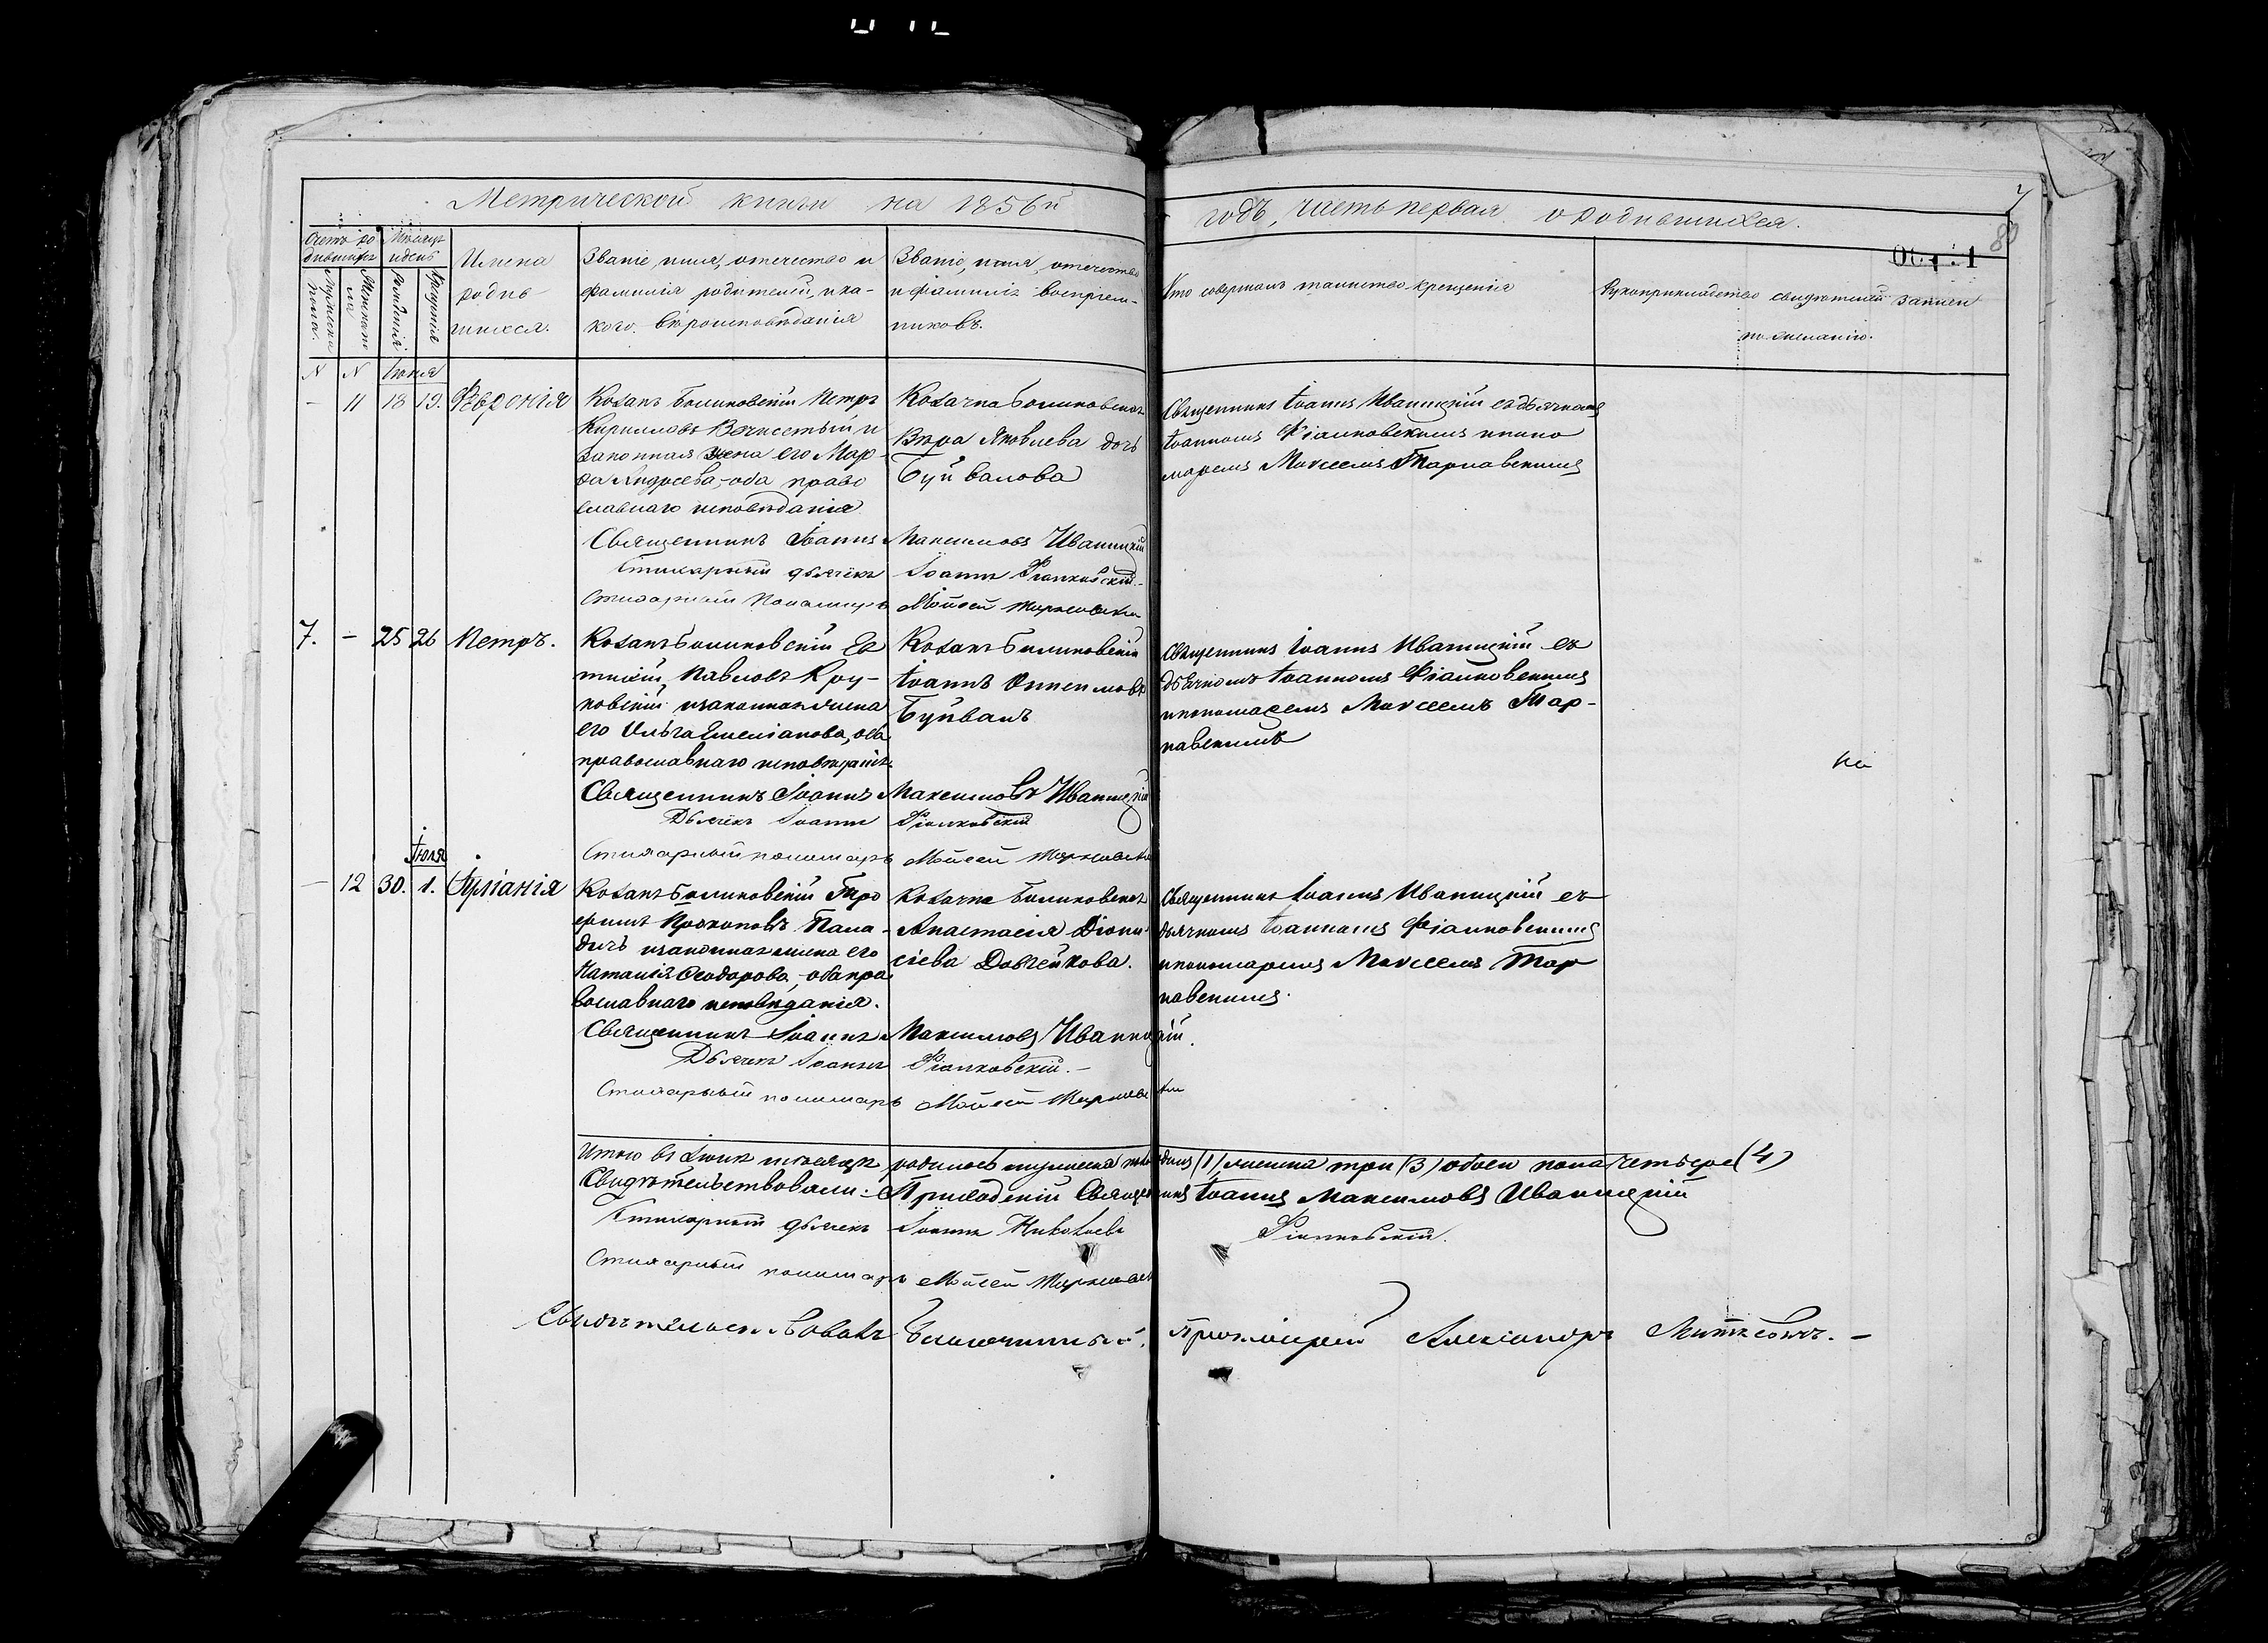 Метрической книги на 1856й
годъ, часть первая о родившихся.
Счетъ ро-
дившихся
Мѣсяцъ
и день
Мужеска
пола.
Женска
Рожденія
Крещенія
Имена
родив-
шихся.
Званіе, имя, отчество и
фамилія родителей, и ка-
кого вѣроисповѣданія
Званіе, имя, отчество
и фамилія воспріем-
никовъ.
Кто совершалъ таинство крещенія
Рукоприкладство свидѣтелей записи
по желанію.
N N Іюня
- 11 18 19. Феѵронія
Козакъ Петръ
Кирилловъ и
законная жена его Мар-
фа Андреева, оба право
славнаго исповѣданія
Козачка
Вѣра Яковлева дочь
Буйвалова
Священникъ Іоаннъ Иваницкій съ дьячкомъ
Іоанномъ Фіалковскимъ и поно
маремъ Моѵсеемъ Тарнавскимъ
Священникъ Іоаннъ Максимовъ Иваницкій
Стихарный дьячекъ Іоаннъ Фіалковскій.
Стихарный Пономарь Мойсей
7. - 25 26 Петръ.
Козакъ Ев
тихій Павловъ Кру-
ковскій и законная жена
его Ольга Емеліанова, оба
православнаго исповѣданія
Козакъ
Іоаннъ Онисимовъ
Буйвалъ
Священникъ Іоаннъ Иваницкій съ
дьячкомъ Іоанномъ Фіалковскимъ
и пономаремъ Моѵсеемъ Тар-
навскимъ
Священникъ Іоаннъ Максимовъ Иваницкій
Дьячекъ Іоаннъ Фіалковскій
Стихарный пономарь Мойсей
Іюля
- 12 30. 1. Іуліанія
Козакъ Тро
фимъ Прокоповъ Пала-
дичъ и законная жена его
Наталія Ѳеодорова, оба пра
вославнаго исповѣданія.
Козачка
Анастасія Діони-
сіева Довгейкова.
Священникъ Іоаннъ Иваницкій съ
дьячкомъ Іоанномъ Фіалковскимъ
и пономаремъ Моѵсеемъ Тар
навскимъ.
Священникъ Іоаннъ Максимовъ Иваницкій.
Дьячекъ Іоаннъ Фіалковскій.-
Стихарный пономарь Мойсей
Итого въ Іюнѣ мѣсяцѣ родилось мужеска пола одинъ (1) женска три (3) обоего пола четыре (4)
Свидѣтельствовали: Приходскій Священникъ Іоаннъ Максимовъ Иваницкій
Стихарный дьячекъ Іоаннъ Николаевъ Фіалковскій.
Стихарный пономарь Мойсей
Свидѣтельствовалъ Благочинный, Протоіерей Александръ